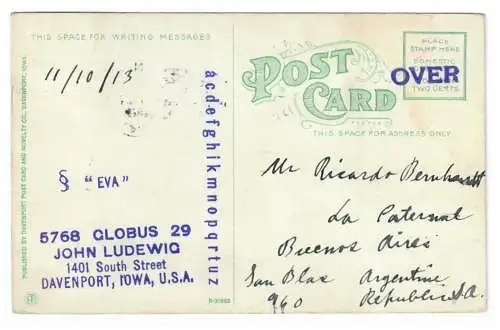 THIS SPACE FOR WRITING MESSAGES
11/10/13
§ "EVA"
5768 GLOBUS 29
JOHN LUDEWIG
1401 South Street
DAVENPORT, IOWA, U.S.A.
acdefghikmnopqrtuz
PUBLISHED BY DAVENPORT POST CARD AND NOVELTY CO., DAVENPORT, IOWA.
POST CARD
PLACE
STAMP HERE
DOMESTIC
TWO CENTS
OVER
THIS SPACE FOR ADDRESS ONLY
Mr Ricardo Bernhardt
La Paternal
Buenos Aires
San Blas Argentine
960 Republic S.A.